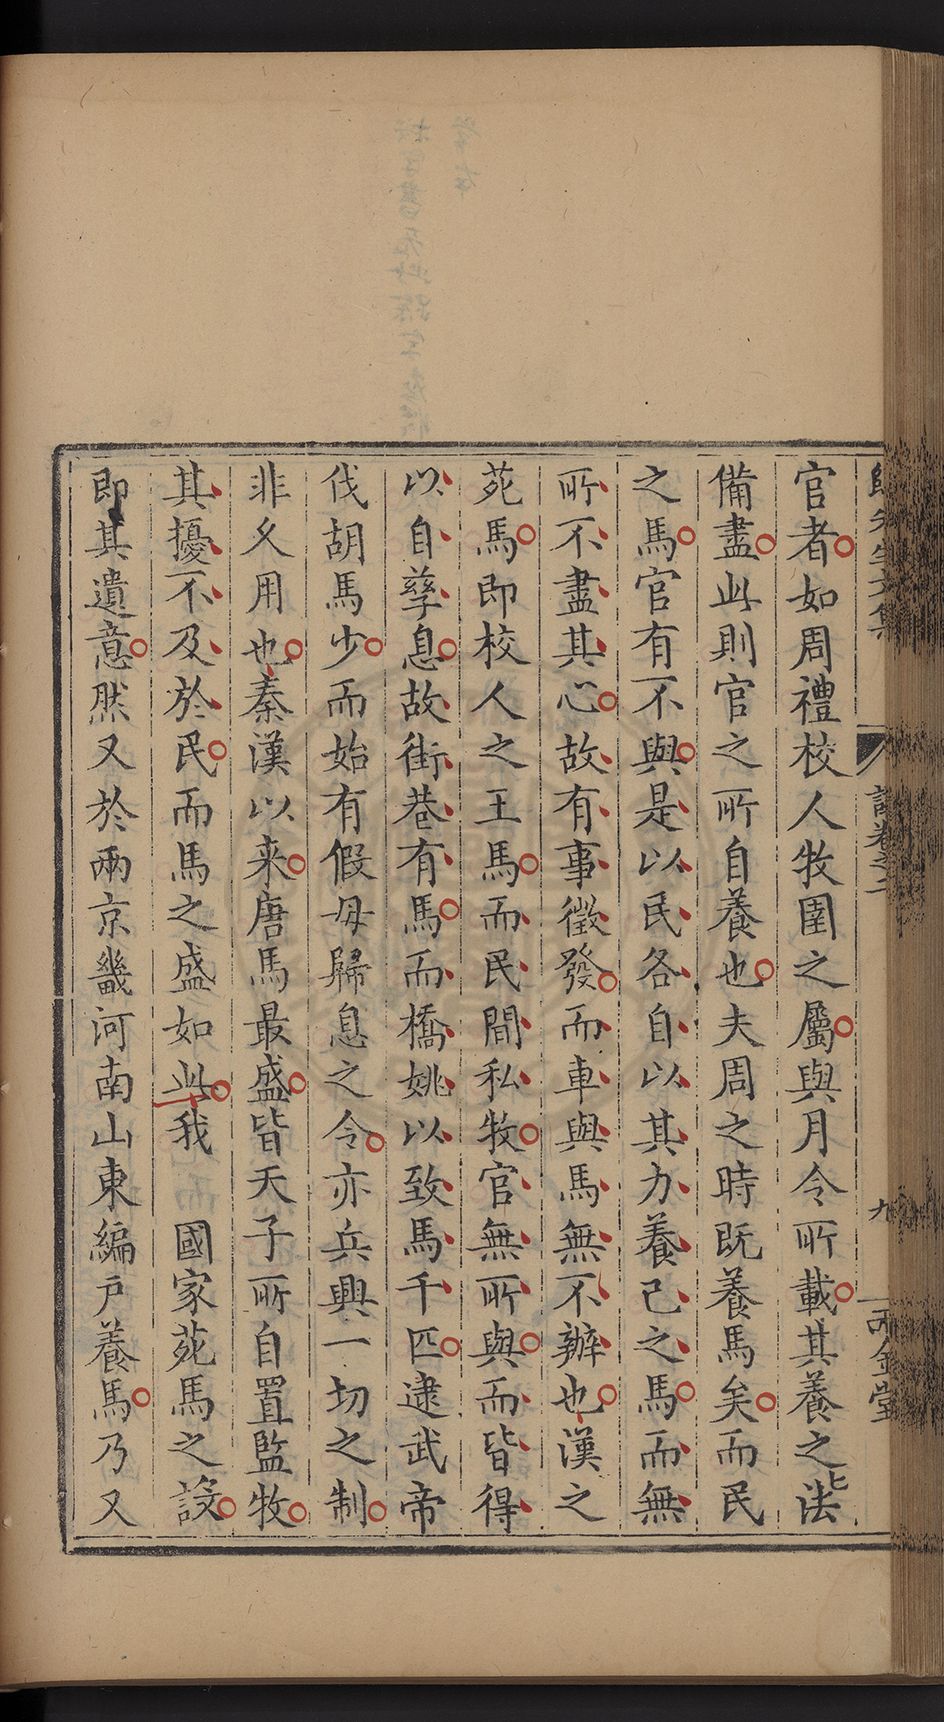 官者如周禮校人牧圉之屬與月令所載其養之法
備盡此則官之所自養也夫周之時既養馬矣而民
之馬官有不與是以民各自以其力養己之馬而無
所不盡其心故有事徵發而車與馬無不辦也漢之
苑馬即校人之王馬而民間私牧官無所與而皆得
以自孳息故街巷有馬而橋姚以致馬千匹逮武帝
伐胡馬少而始有假母歸息之令亦兵興一切之制
非久用也秦漢以来唐馬最盛皆天子所自置監牧
其擾不及於民而馬之盛如此我 國家苑馬之設
即其遺意然又於兩京畿河南山東編戶養馬乃又
九